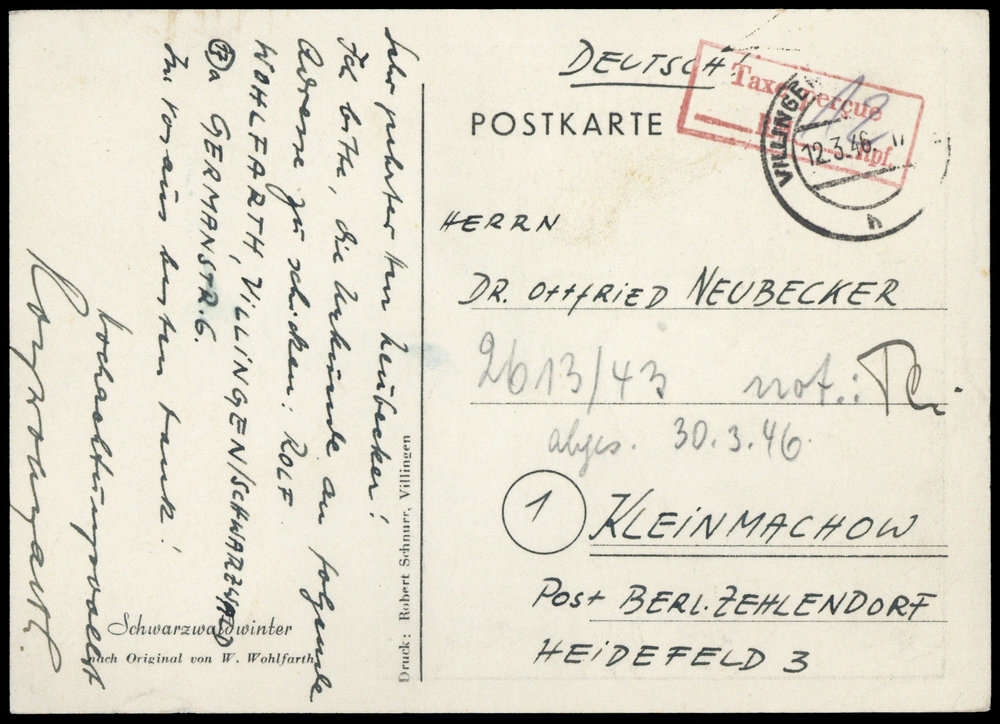 DEUTSCH
Taxe perçue
12
Rpf.
VILLINGEN
12.3.46.
h
POSTKARTE
HERRN
DR. OTTFRIED NEUBECKER
2613/43 not.:
abges. 30.3.46.
1 KLEINMACHOW
POST BERL. ZEHLENDORF
HEIDEFELD 3
Sehr geehrter Herr Neubecker!
Ich bitte, die Urkunde an folgende
Adresse zu schicken: ROLF
WOHLFARTH, VILLINGEN/SCHWARZWALD
17a GERMANSTR. 6.
Im voraus besten Dank!
Hochachtungsvollst
Schwarzwaldwinter
nach Original von W. Wohlfarth
Druck: Robert Schnurr, Villingen